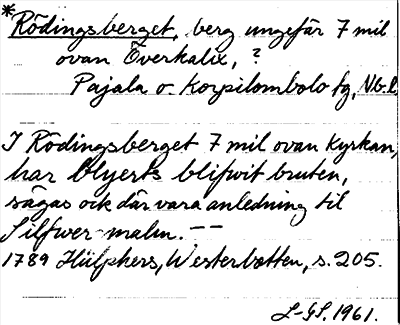 *Rödingsberget, berg ungefär 7 mil
ovan Överkalix, ?
Pajala o. Korpilombolo fg, Nb.l.
I Rödingsberget 7 mil ovan Kyrkan,
har Blyerts blifwit bruten,
sägas ock där vara anledning til
Silfwer-malm. --
1789 Hülphers, Westerbotten, s. 205.
L-GS. 1961.